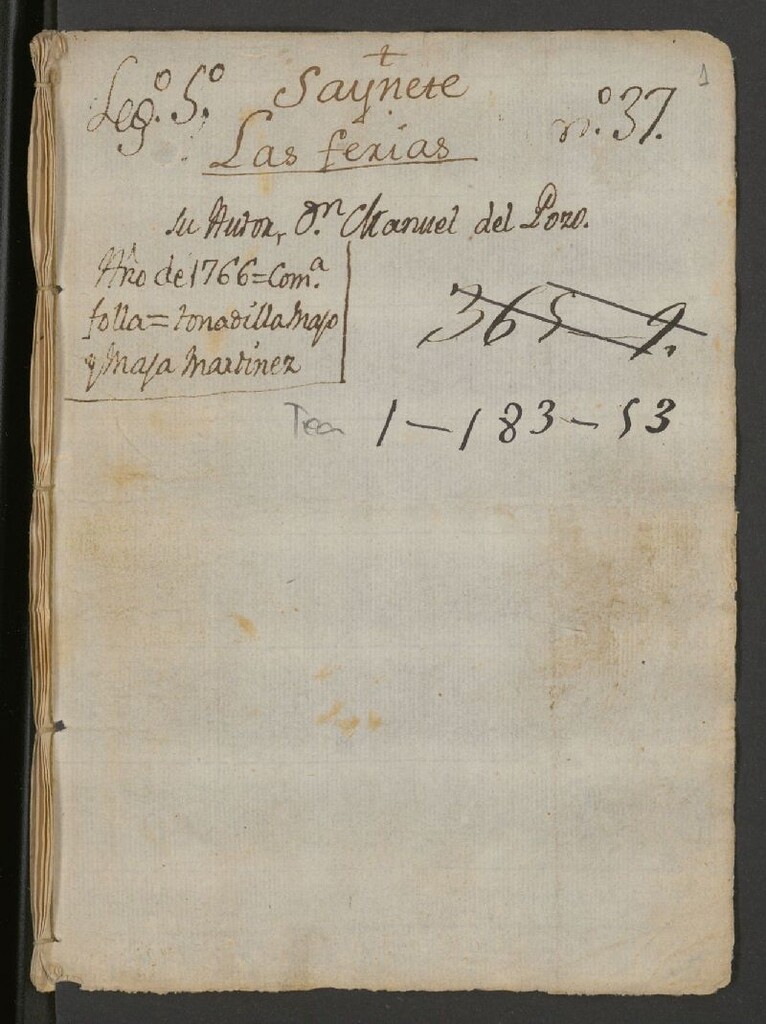 1
+
Leg.º 5.º Saynete n.º 37.
Las ferias
su Autor, D.n Manuel del Pozo.
Año de 1766 = Com.ª
folla = tonadilla Majo
y Maja Martinez
365 9.
Tea 1-183-53